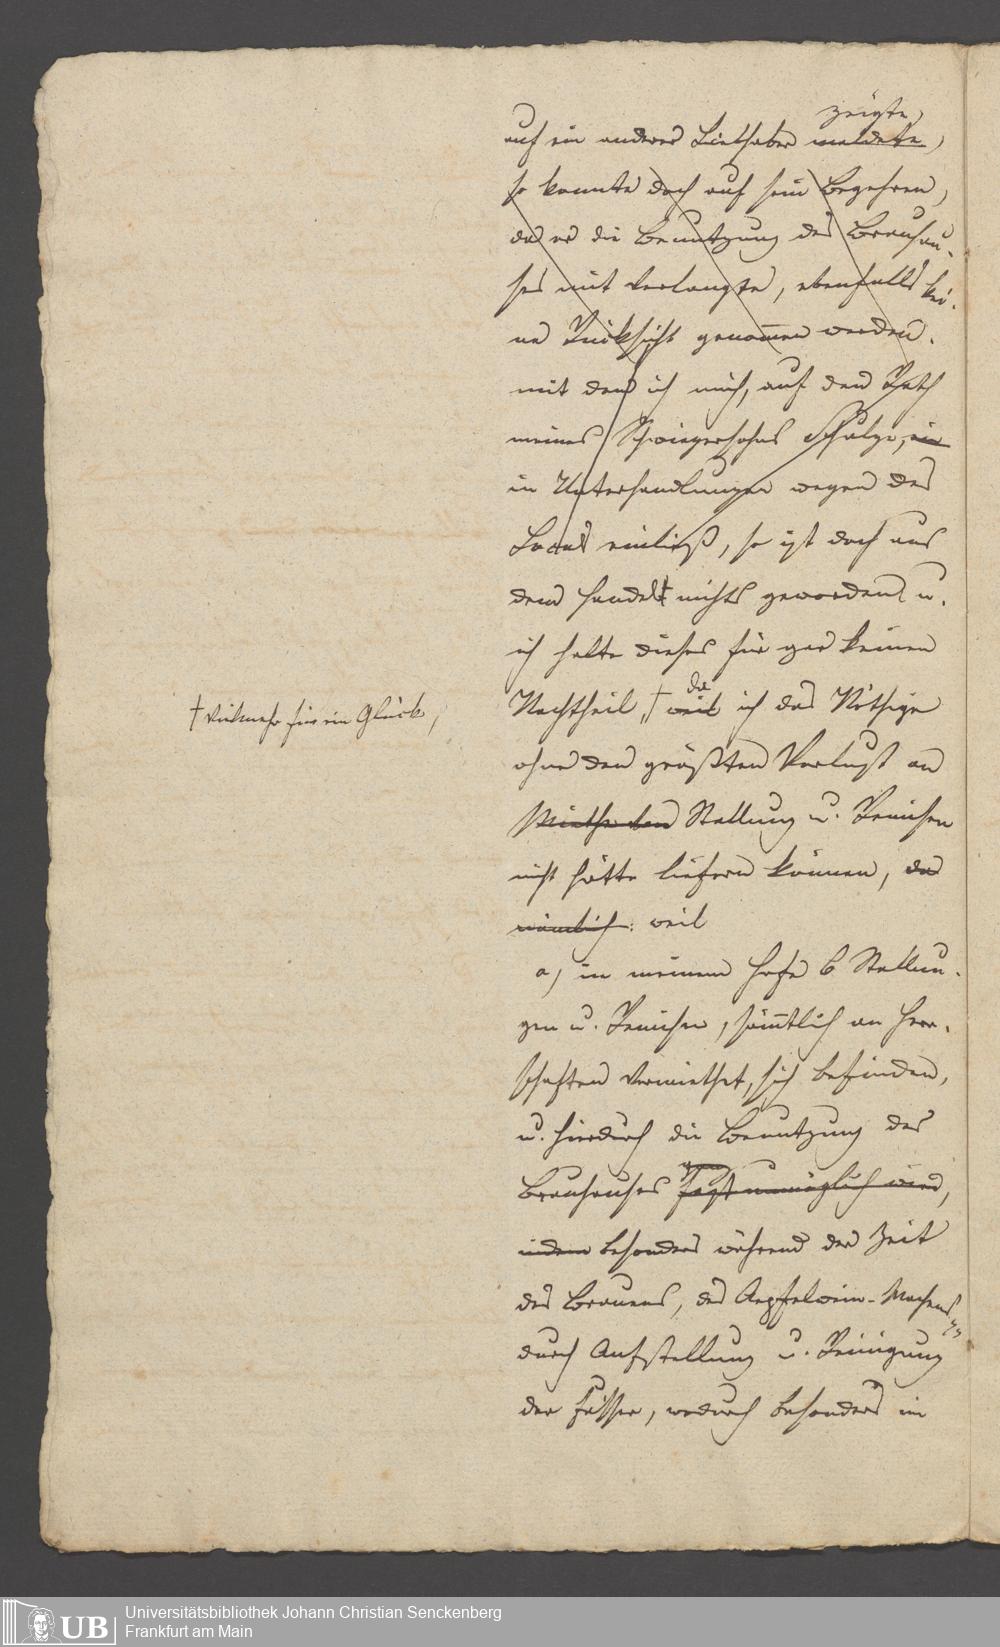 zeigte,
auch ein anderer Liebhaber meldete,
so konnte doch auf sein Begehren,
da er die Benutzung des Brauhau-
ses mit verlangte, ebenfalls kei-
ne Rücksicht genommen werden.
mit dem ich mich, auf den Rath
meines Schwiegersohns Schulze, ein
in Unterhandlungen wegen des
Locals einließ, so ist doch aus
dem Handel nichts geworden, u.
ich halte dieses für gar keinen
da
Nachtheil, † weil ich das Nöthige
† vielmehr für ein Glück,
ohne den größten Verlust an
Miethe den Stallung u. Remisen
nicht hätte liefern können, da
nämlich: weil
a, in meinem Hofe 6 Stallun-
gen u. Remisen, sämmtlich an Herr-
schaften vermiethet, sich befinden,
u. hierdurch die Benutzung des
Brauhauses fast unmöglich wird,
indem besonders während der Zeit
des Brauens, des Aepfelwein-Machens
durch Aufstellung u. Reinigung
der Fässer, wodurch besonders im
UB
Universitätsbibliothek Johann Christian Senckenberg
Frankfurt am Main